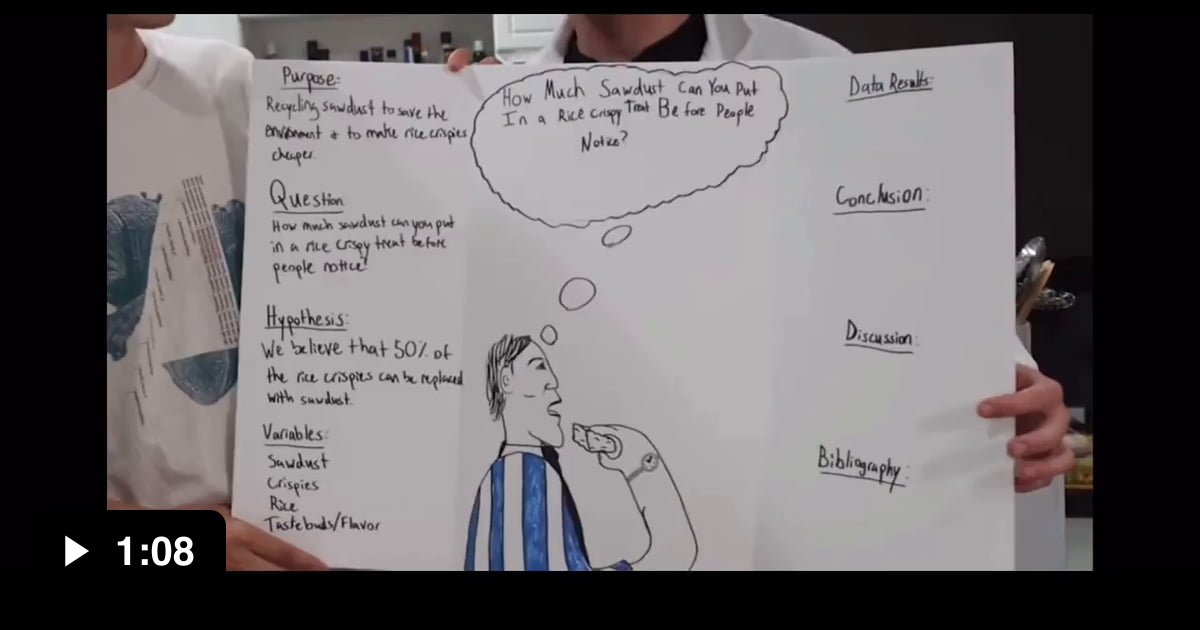 Purpose:
Recycling sawdust to save the
environment & to make rice crispies
cheaper.
Question
How much sawdust can you put
in a rice crispy treat before
people notice?
Hypothesis:
We believe that 50% of
the rice crispies can be replaced
with sawdust.
Variables:
Sawdust
Crispies
Rice
Tastebuds/Flavor
How Much Sawdust Can You Put
In a Rice Crispy Treat Before People
Notice?
Data Results:
Conclusion:
Discussion:
Bibliography:
1:08